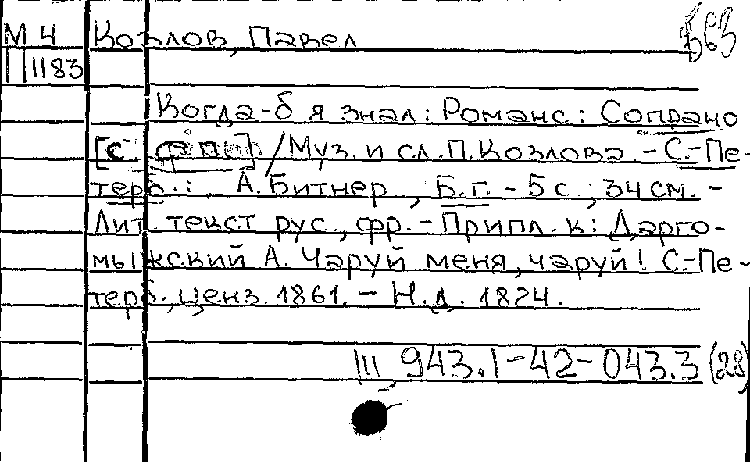 М 4 Козлов, Павел Б63
П1183
Когда-б я знал: Романс: Сопрано
[с фп.] /Муз. и сл. П. Козлова. - С.-Пе-
терб.: А. Битнер, Б.г. - 5 с.; 34 см. -
Лит. текст рус., фр. - Припл. к: Дарго-
мыжский А. Чаруй меня, чаруй! С.-Пе-
терб., ценз. 1861. - Н.д. 1824.
III 943.1-42-043.3 (28)